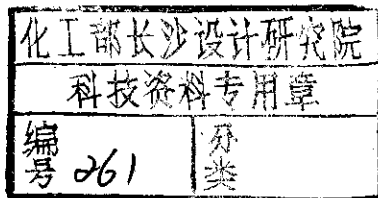 化工部长沙设计研究院
科技资料专用章
编号 261 分类